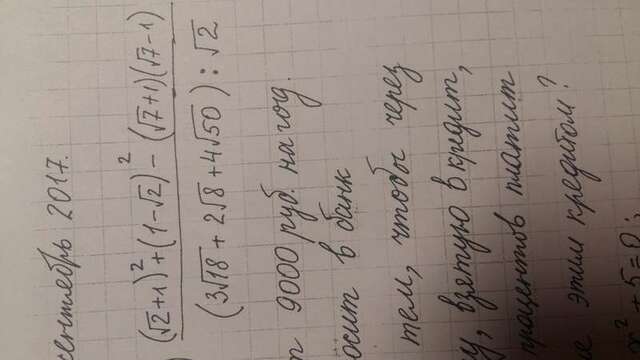 сентябрь 2017.
(√2+1)²+(1-√2)²-(√7+1)(√7-1)
(3√18+2√8+4√50):√2
9000 руб. на год.
в банк
тем, чтобы через
взятую в кредит,
процентов платит
этим кредитом?
+5=0;